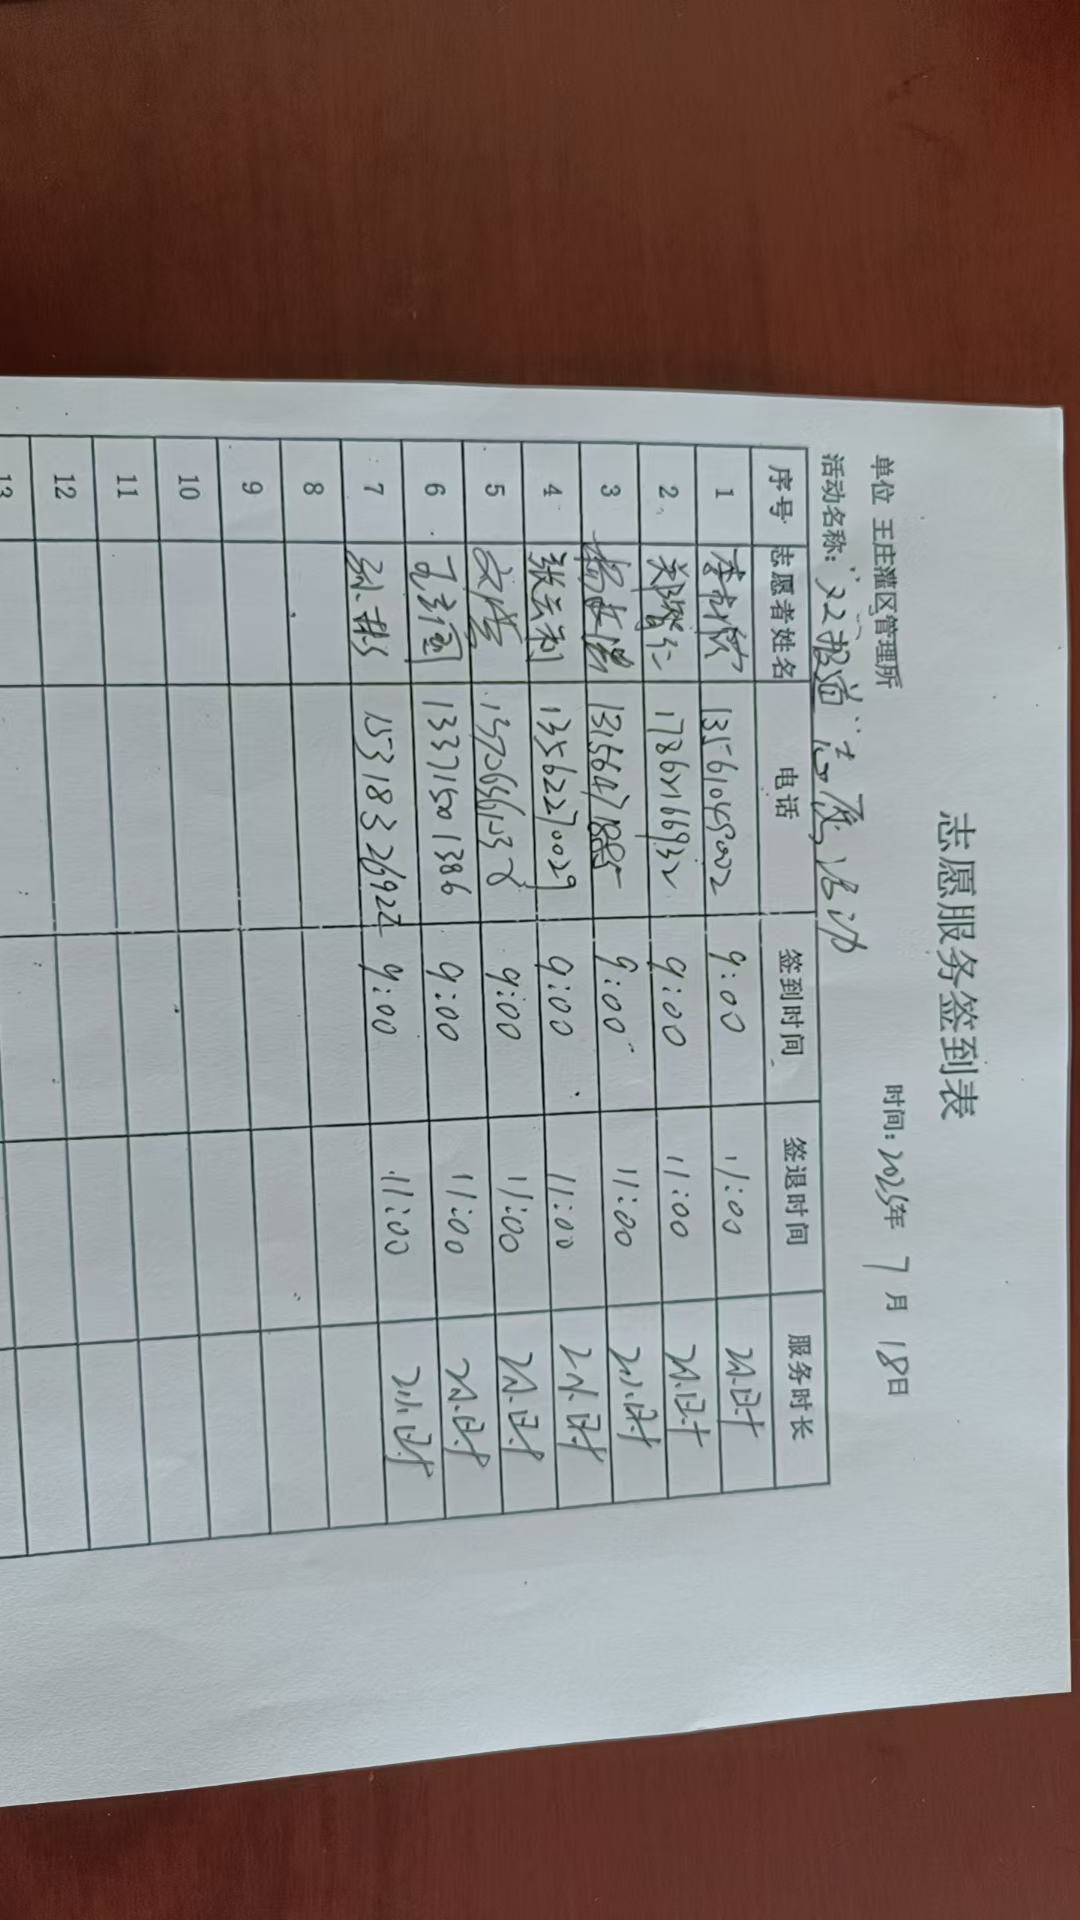 志愿服务签到表
单位 王庄灌区管理所 时间：2025年 7月 18日
活动名称："双报道"志愿活动
序号 志愿者姓名 电话 签到时间 签退时间 服务时长
1 9:00 11:00 2小时
2 17862166932 9:00 11:00 2小时
3 9:00 11:00 2小时
4 张云利 13562270029 9:00 11:00 2小时
5 9:00 11:00 2小时
6 13371501386 9:00 11:00 2小时
7 9:00 11:00 2小时
8
9
10
11
12
13